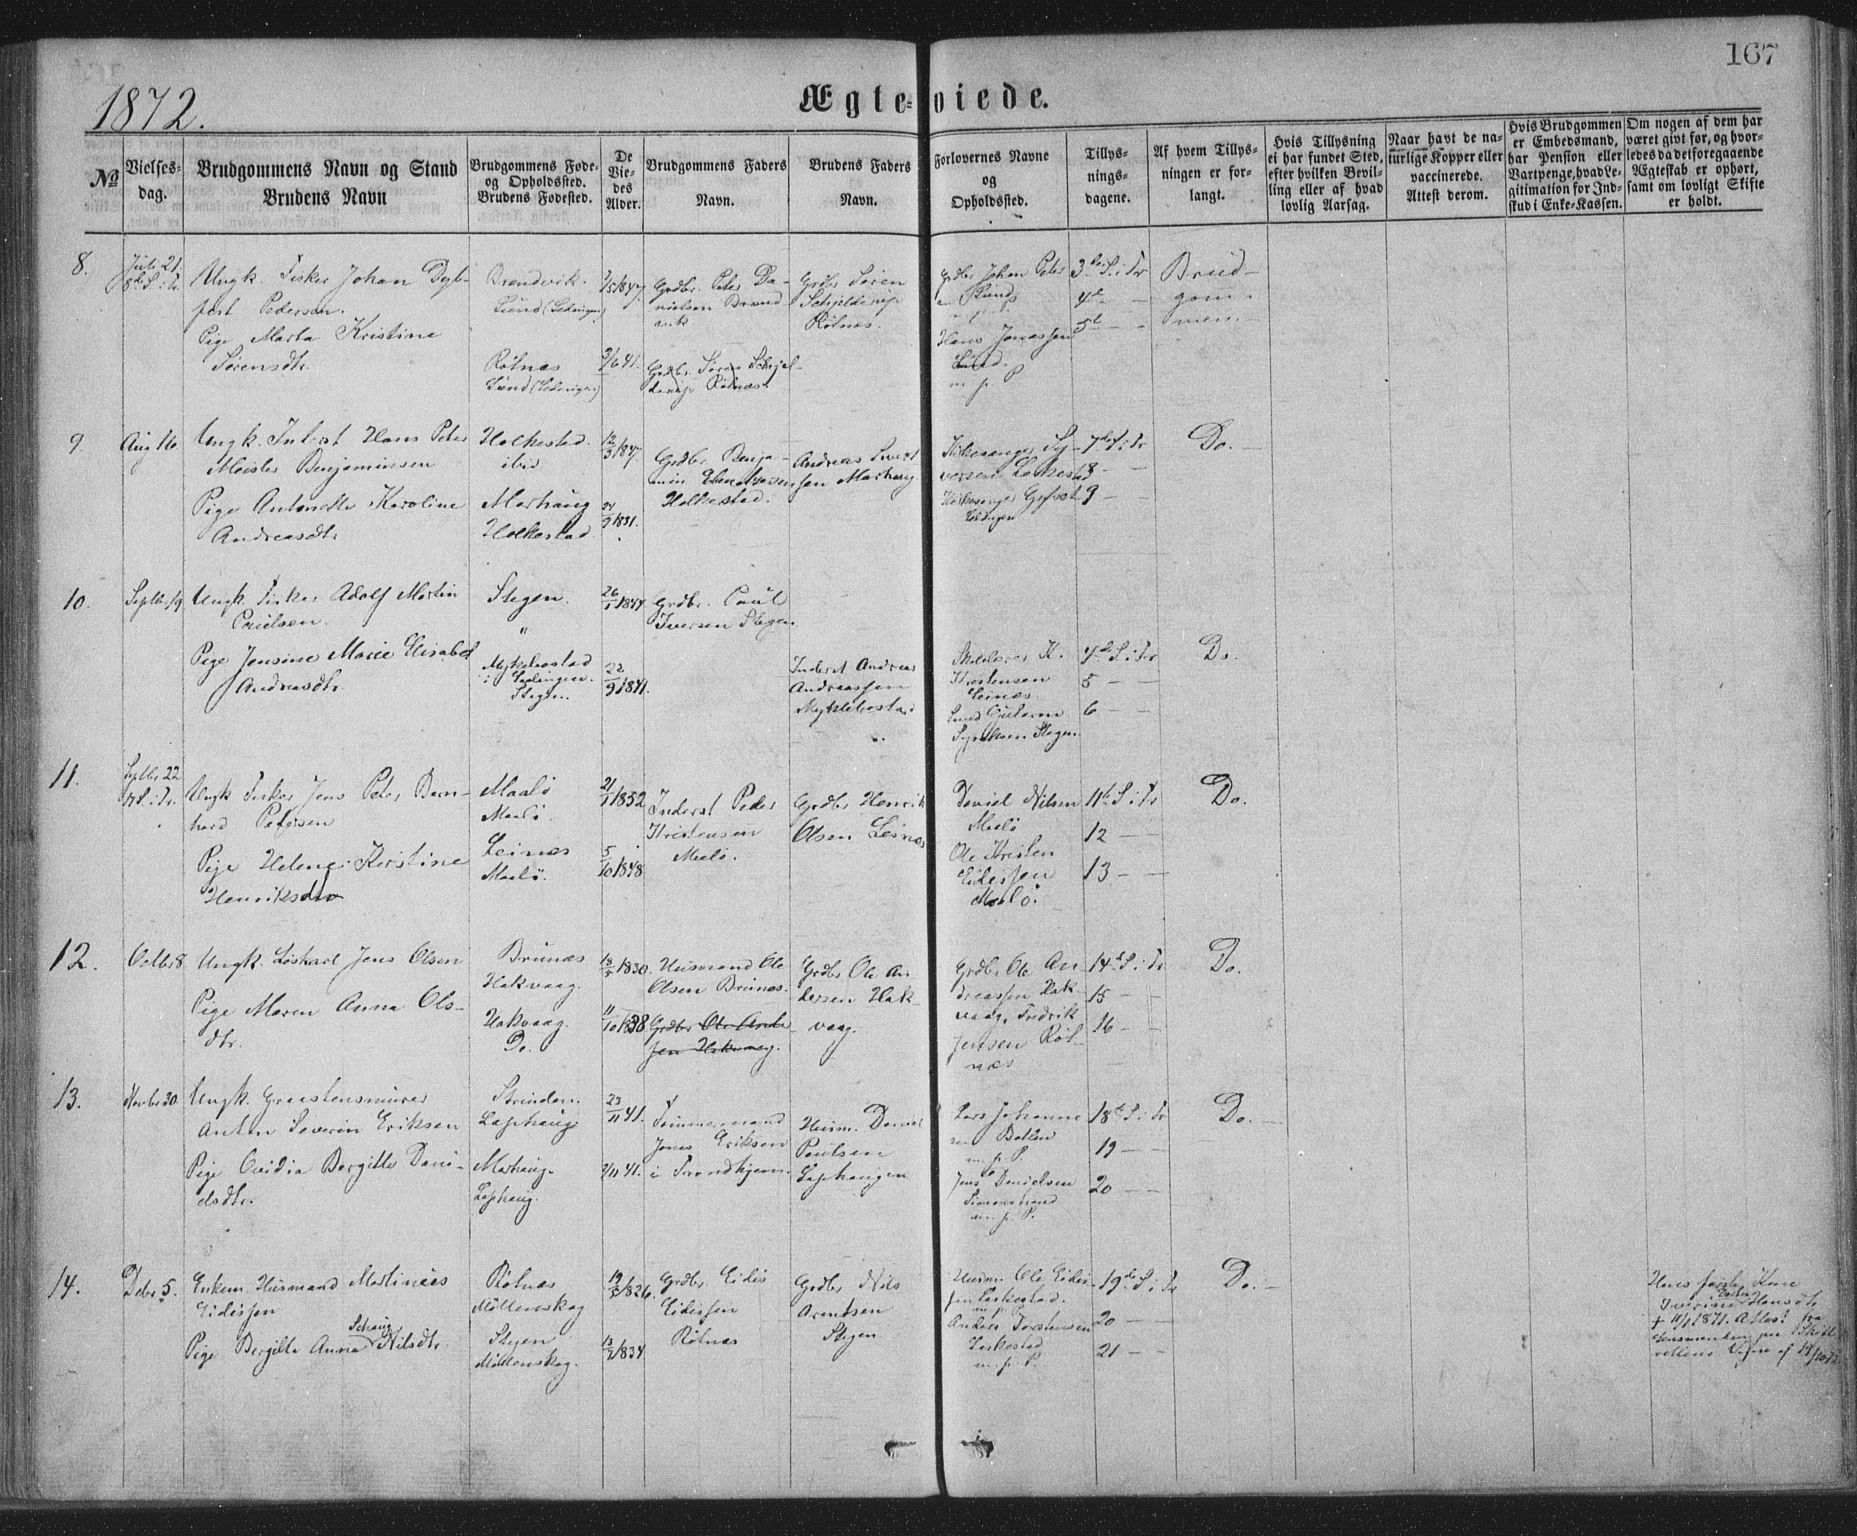 167
1872.
Ægteviede.
№
Vielses-
dag.
Brudgommens Navn og Stand
Brudens Navn
Brudgommens Føde-
og Opholdssted.
Brudens Fødested.
De
Vie-
des
Alder.
Brudgommens Faders
Navn.
Brudens Faders
Navn.
Forlovernes Navne
og
Opholdssted.
Tillys-
nings-
dagene.
Af hvem Tillys-
ningen er for-
langt.
Hvis Tillysning
ei har fundet Sted,
efter hvilken Bevil-
ling eller af hvad
lovlig Aarsag.
Naar havt de na-
turlige Kopper eller
vaccinerede.
Attest derom.
Hvis Brudgommen
er Embedsmand,
har Pension eller
Vartpenge, hvad Le-
gitimation for Ind-
skud i Enke-Kassen.
Om nogen af dem har
været givt før, og hvor-
ledes da det foregaaende
Ægteskab er ophørt,
samt om lovligt Skifte
er holdt.
8.
Juli 21.
8de S. i Tr
Ungk. Fisker Johan Dyb-
fest Pedersen.
Pige Marta Kristine
Sørensdtr.
Brendvik.
Lund (Lødingen)
Rølnæs
Lund (Lødingen)
Grdbr. Peter Da-
nielsen Brend-
Grdbr. Søren Schjel-
derup Rølnæs.
Grdbr Søren
Schjelderup
Rølnæs.
Grdbr Johan Peter
Hans Jonassen
Lund.
m. p. P
3die S. i Tr
4de — —
5te — —
Brud-
gom-
men.
9.
Aug 16
Ungk. Inderst Hans Peter
Meister Benjaminsen
Pige Antonette Karoline
Andreasdtr
Holkestad.
ibid
Marhaug
Holkestad.
12/3 1847.
24/9 1831.
Grdbr. Benja-
min
Holkestad.
Andreas
sen Marhaug
Kirkesanger
Kirkesanger
7de S. i Tr
8 —
9 —
Do.
10.
Septbr 19
Ungk. Fisker Adolf Martin
Paulsen.
Pige Jensine Marie Elisabet
Andreasdtr.
Stegen.
"
Myklebostad
i Lødingen.
Stegen.
26/1 1844
22/9 1841.
Grdbr. Paul
Iversen Stegen.
Inderst Andreas
Andreassen
Myklebostad
Skolelærer K.
Kristensen
Leinæs.
4de S. i Tr
5 — —
6 — —
Do.
11.
Septbr 22
17 S. i Tr.
Ungk Fisker Jens Peter Bern-
hard Petersen
Pige Helene Kristine
Henriksdtr
Maalø
Maalø.
Leinæs
Maalø.
21/1 1852
5/10 1848
Inderst Peder
Kristensen
Maalø.
Grdbr Henrik
Olsen Leinæs
Daniel Nilsen
Maalø
Ole Kristen
Eidissen
Maalø.
11te S. i Tr
12 — —
13 — —
Do.
12.
Octbr 8
Ungk. Løskarl Jens Olsen
Pige Maren Anna Ols-
dtr.
Brunæs
Hakvaag.
Hakvaag.
Do.
18/5 1830.
11/10 1838
Husmand Ole
Olsen Brunæs.
Grdbr Ole Ande
sen Hakvaag.
Grdbr Ole An
dersen Hak-
vaag.
Grdbr Ole An
dreassen Hak-
vaag, Fredrik
Jensen Røl-
næs
14de S. i Tr
15 — —
16 — —
Do.
13.
Novbr 30
Ungk. Graastensmurer
Anton Severin Eriksen
Pige Ovidia Bergitte Dani-
elsdtr.
Strinden.
Laphaug
Marhaug
Laphaug.
23/11 41.
2/11 41.
Tømmermand
Jonas Eriksen
i Trondhjem.
Husm. Daniel
Paulsen
Laphaugen
Lars Johanne
sen Botten
m. p. P.
Jens Danielsen
m. p. P.
18de S. i Tr
19 — —
20 — —
Do.
14.
Decbr 5.
Enkem. Husmand Martinus
Eidissen
Pige Bergitte Anna Schaug Nilsdtr.
Rølnæs
Møllenskog
Stegen
Møllenskog.
19/3 1826.
13/2 1834
Grdbr. Eidis
Eidissen
Rølnæs
Grdbr Nils
Arentsen
Stegen
Husm. Ole Eidis-
sen Laskestad.
m. p. P.
Anders Torstensen
Laskestad
m. p. P.
19de S. i Tr
20 — —
21 — —
Do.
Hans første Kone
Iverine Hansdtr
† 11/1 1871. Attest fra